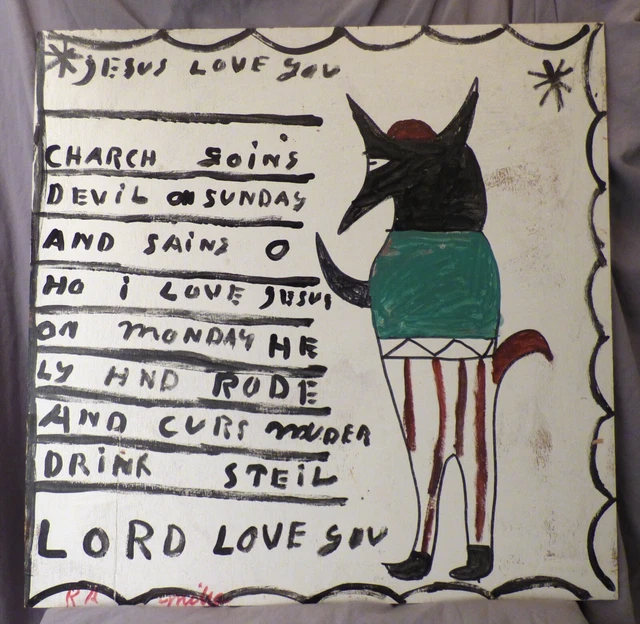 JESUS LOVE YOU
CHARCH GOiNS
DEViL ON SUNDAY
AND SAiNS O
HO i LOVE JUSUS
ON MONDAY HE
LY AND RODE
AND CURS MUDER
DRiNK STEiL
LORD LOVE YOU
RA miller